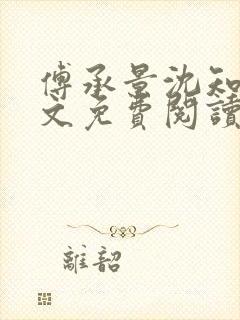 傅承景沈知
文免費閱讀
離韶